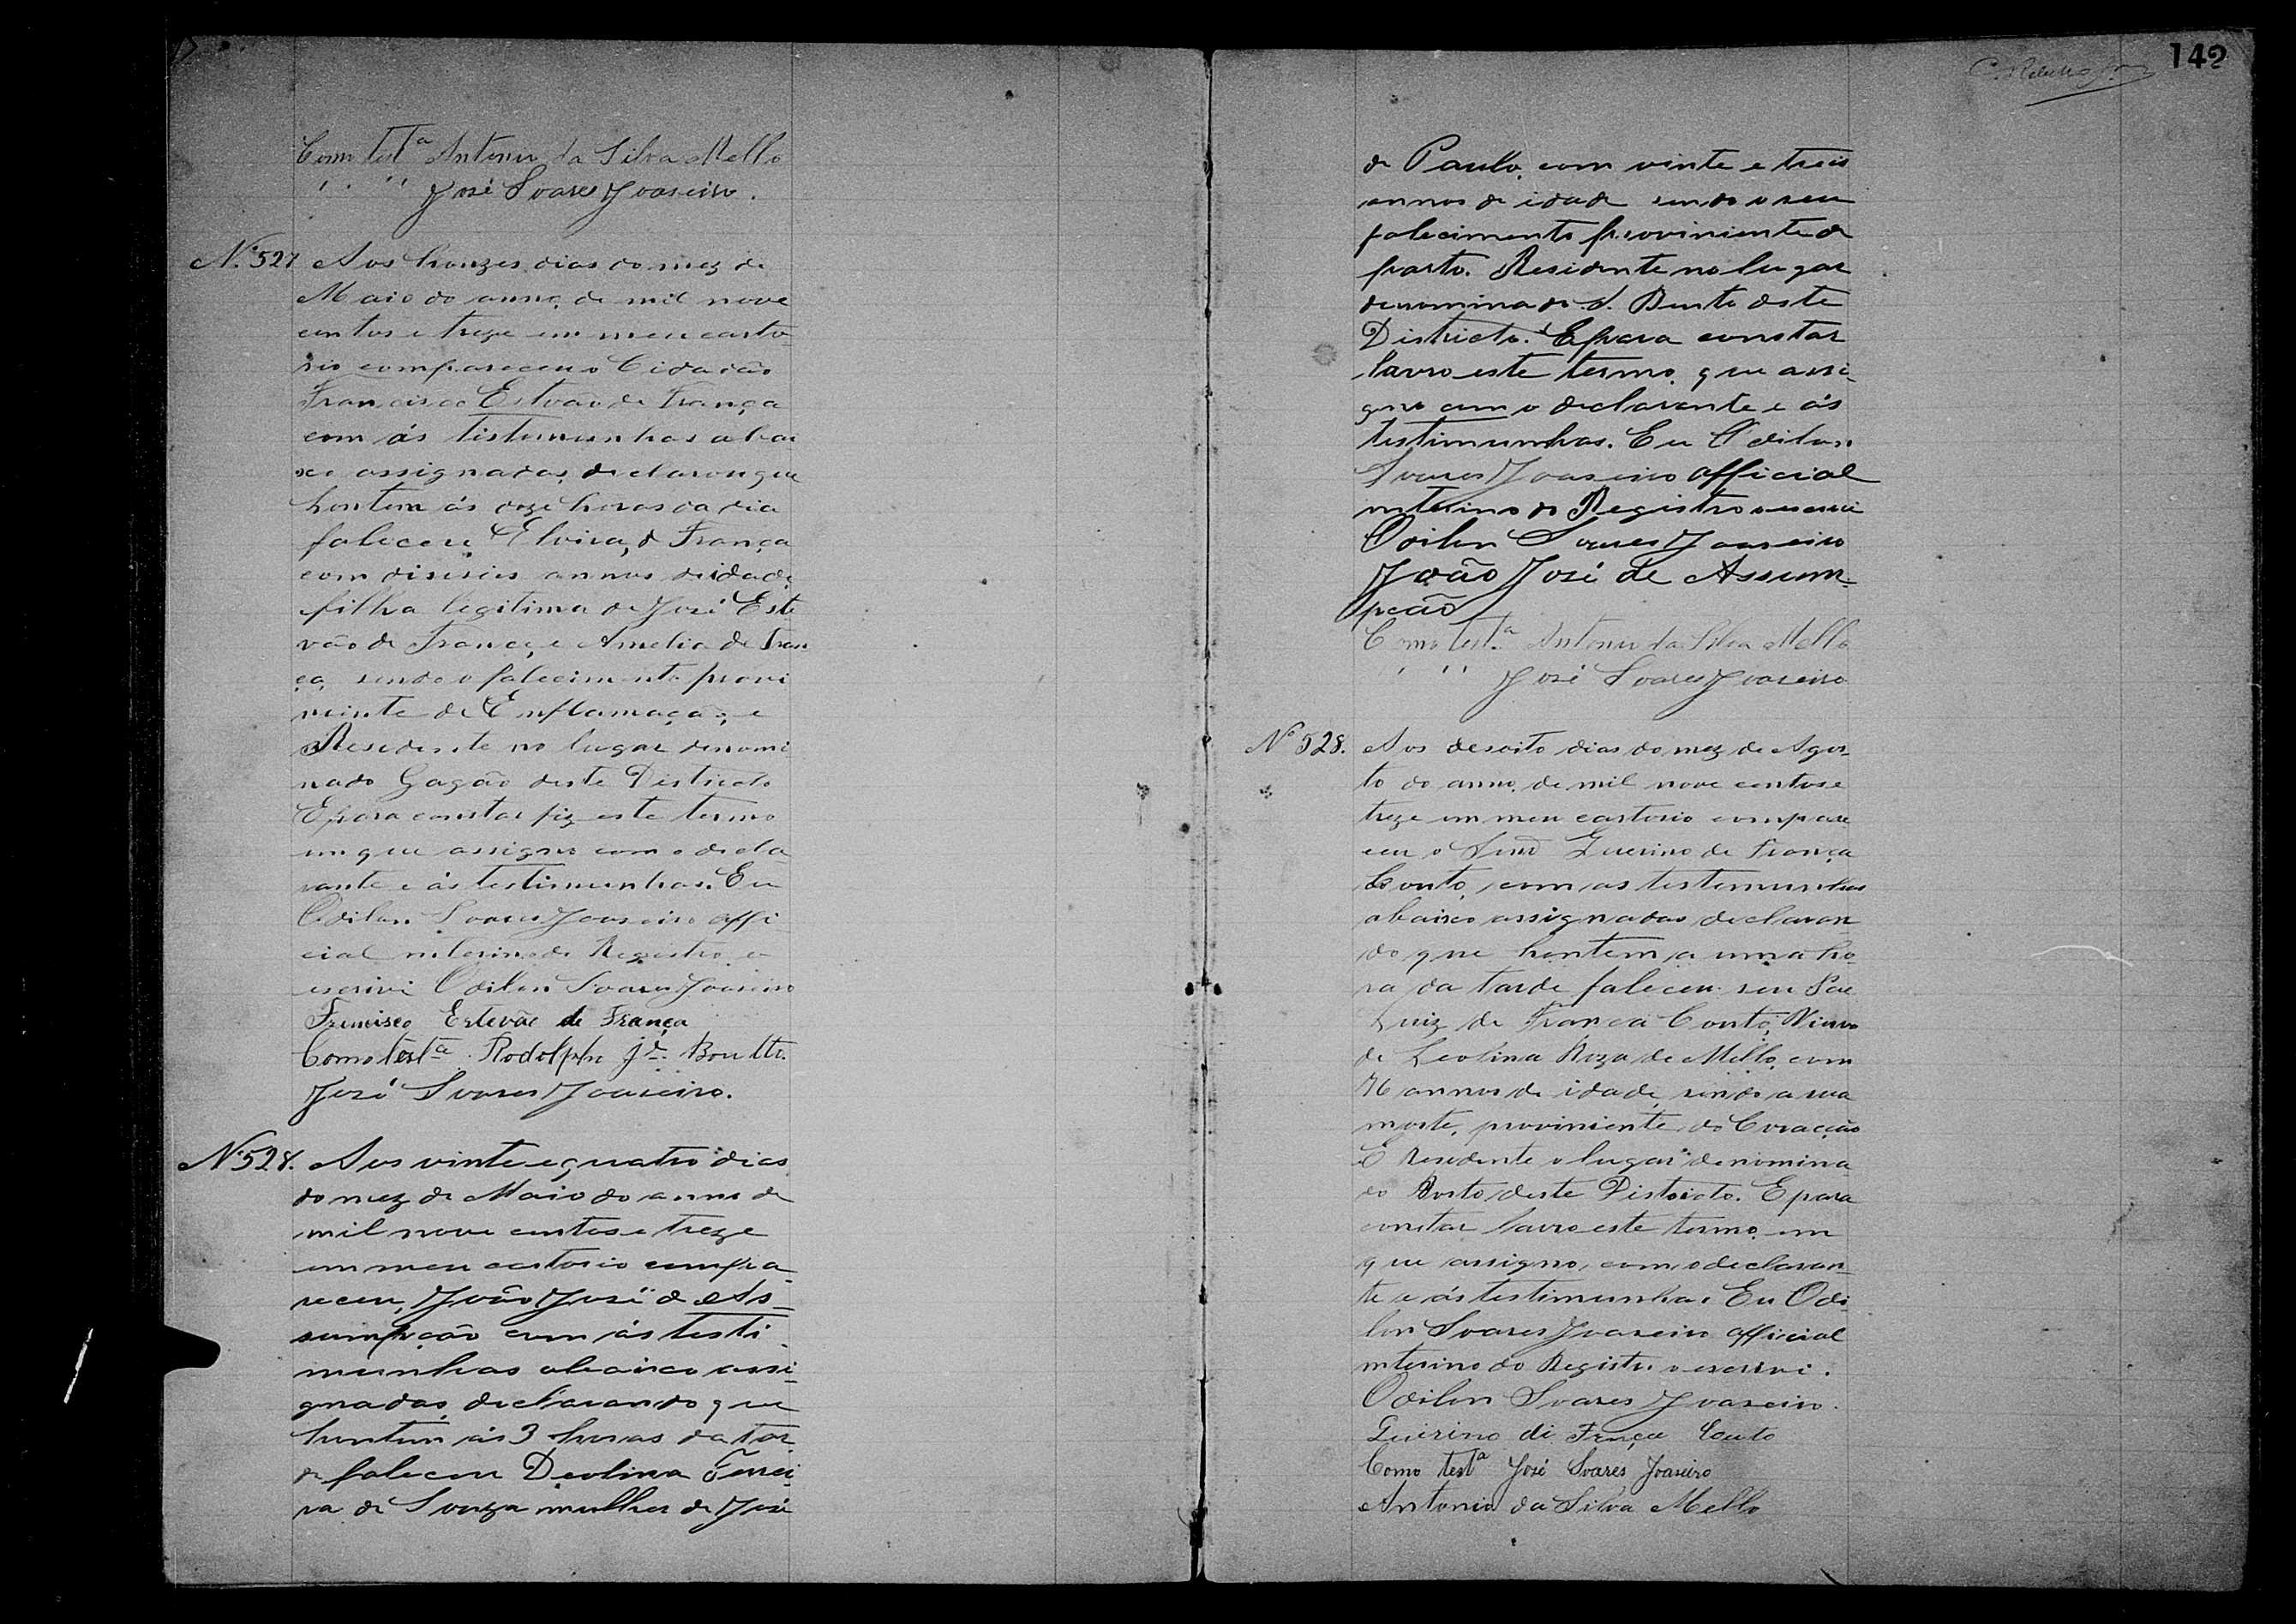 Como test.ª Antonio da Silva Mello
" " José Soares Joaseiro.
Nº 527 Aos honzes dias do mez de
Maio do anno de mil nove
centos e treze em meu carto
rio compareceu o Cidadão
Francisco Estvão de França
com ás tistemunhas abai
xo assignadas, declarou que
hontem ás doze horas da dia
faleceu Elvira, d França
com diseseis annos de idade,
filha legitima de José Este
vão de França e Amelia de Fran
ça, sendo o falecimento provi
niente de Enflamação, e
Residente no lugar denomi
nado Gagão deste Districto
E para constar fiz este termo
em que assigno com o decla
rante e ás testimunhas. Eu
Odilon Soares Joaseiro offi
cial interino do Registro o
escrivi Odilon Soares Joaseiro
Francisco Estevão de França
Como testª. Rodolpho Jé.
José Soares Joaseiro.
Nº 528. Aos vinte e quatro dias
do mez de Maio do anno de
mil nove centos e treze
em meu cartorio compa-
receu, João José d As-
sumpção com ás testi-
munhas abaixo assi-
gnadas, declarando que
hontem ás 3 horas da tar
de faleceu Deolina Ferrei
ra de Souza mulher de José
142
de Paulo, com vinte e treis
annos de idade sendo o seu
falecimento proviniente de
parto. Residente no lugar
denominado S. Bento deste
Districto. E para constar
lavro este termo, que assi-
gno com o declarante e ás
testimunhas. Eu Odilon
Soares Joaseiro official
interino do Registro o escrivi
Odilon Soares Joaseiro
João José de Assum-
pção
Como test.ª Antonio da Silva Mello
" " José Soares Joaseiro
Nº 528. Aos desoito dias do mez de Agos-
to do anno de mil nove centos e
treze em meu cartorio compare
ceu o Snrº Guerino de França
Couto, com as testemunhas
abaixo assignadas declaran-
do que hontem a uma ho-
ra da tarde faleceu seu Pae
Luiz de França Couto, Viuvo
de Leolina Roza de Mello, com
76 annos de idade, sendo a sua
morte, proviniente do Coração
E Residente o lugar denomina
do deste Districto. E para
constar lavro este termo em
que assigno, com o declaran-
te e ás testimunhas Eu Odi-
lon Soares Joaseiro official
interino do Registro o escrivi.
Odilon Soares Joaseiro.
Guirino di França Couto
Como testª José Soares Joaseiro
Antonio da Silva Mello